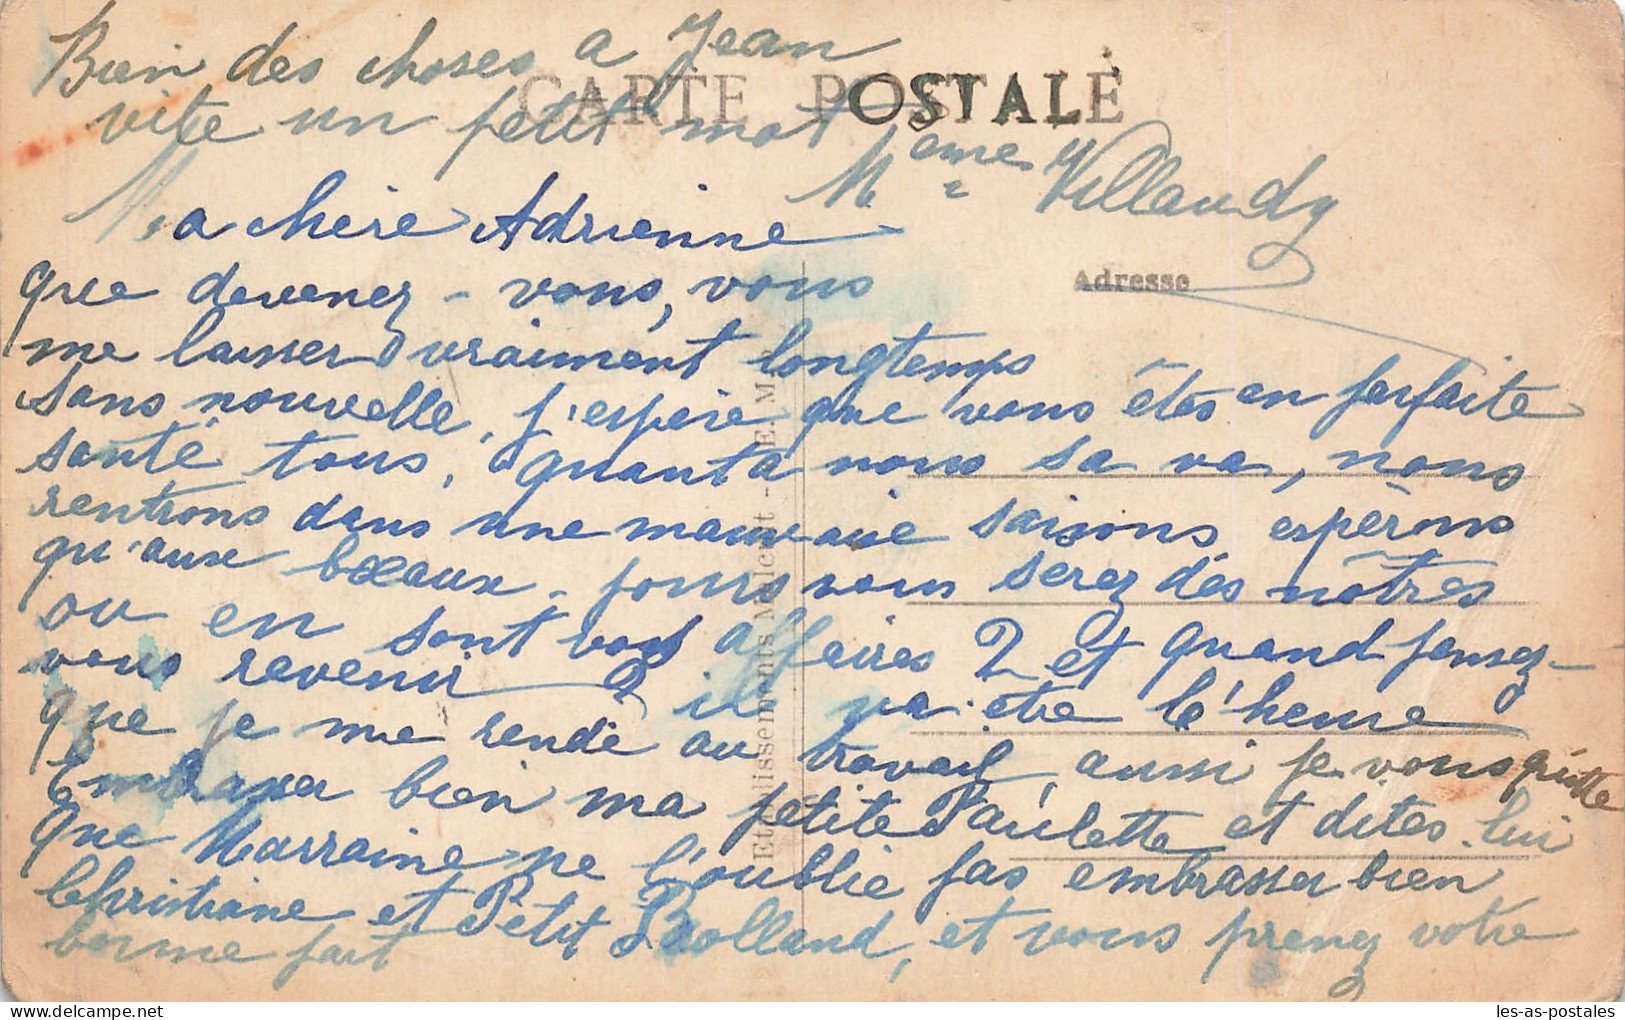 Bien des choses a Jean
CARTE POSTALE
vite un petit mot
Meme Villaudy
Ma chère Adrienne
Adresse
que devenez-vous, vous
me laisser vraiment longtemps
sans nouvelle, j'espère que vous étes en parfaite
santé tous, quant a nous sa va, nous
rentrons dans une mauvaise saisons espèrons
qu'aux beaux-jours vous serez dés nôtres
ou en sont vos affaires ? et quand pensez-
vous revenir ? il va être l'heure
que je me rende au travail, aussi je vous quitte
Embrasser bien ma petite Paulette et dites-lui
que Marraine ne l'oublie pas embrasser bien
Christiane et Petit Rolland, et vous prenez votre
bonne part
Etablissements Malcuit - E. M.
les-as-postales